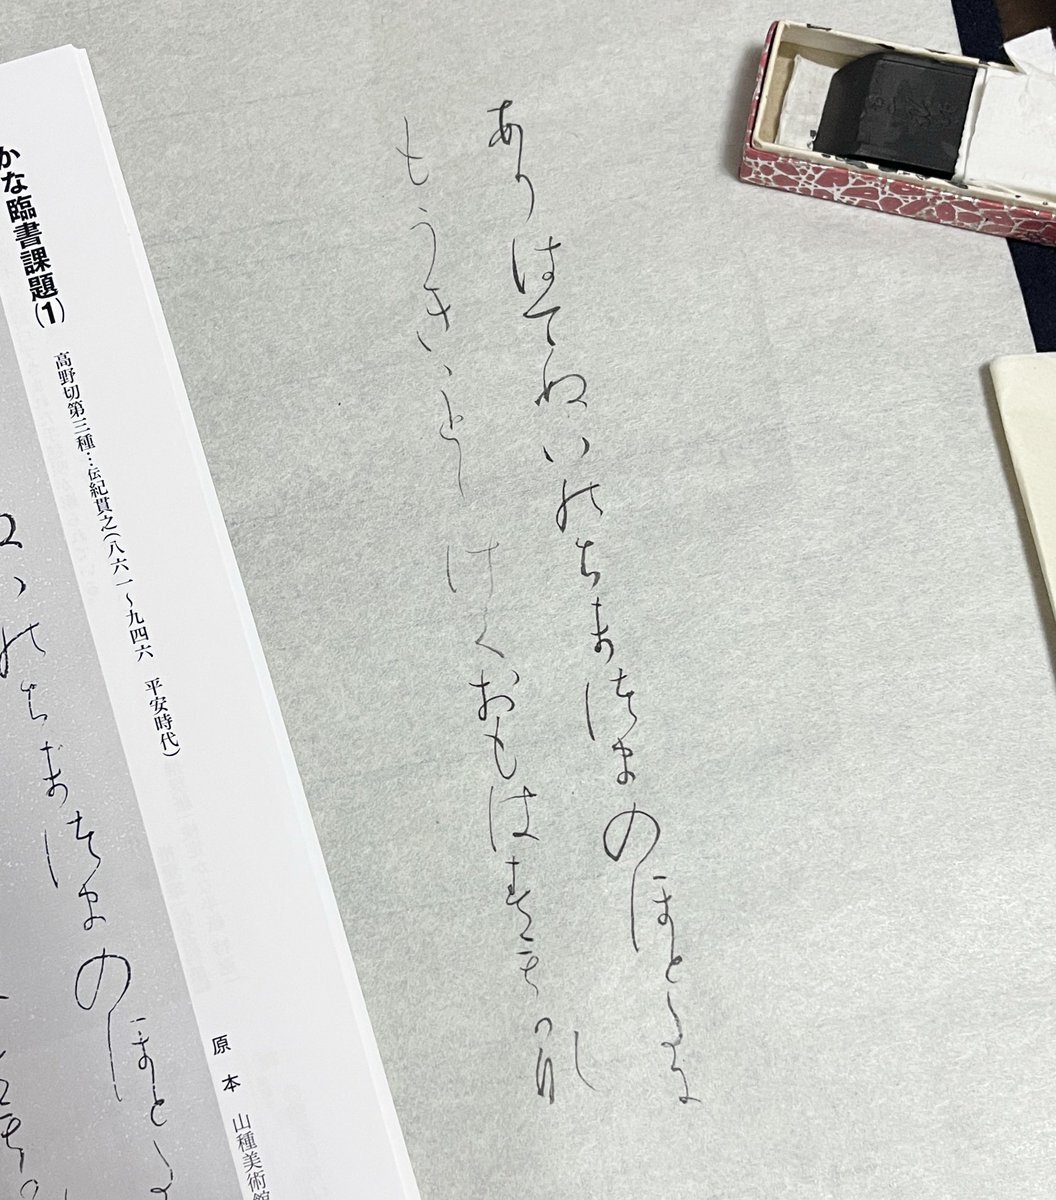 ありはてぬいのちまつまのほと
もうきことしけくおもはす
かな臨書課題(1)
高野切第三種…伝紀貫之(八六一〜九四六 平安時代)
いのちまつまのほと
原本 山種美術館